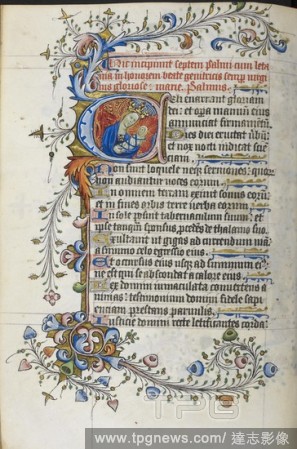 Hic incipiunt septem psalmi cum leta
nia in honorem beate genitricis semp virgi
nis gloriose marie. Psalmus.
Celi enarrant gloriam
dei: et opa manuum eius
annuntiat firmamentū.
Dies diei eructat ūbū:
et nox nocti indicat sci
enciam.
Non sunt loquele neqz sermones: quorū
non audiantur voces eorum.
In omnem terram exiuit sonus eorū:
et in fines orbis terre verba eorum.
In sole posuit tabernaculum suum: et
ipse tanqm sponsus procedēs de thalamo suo.
Exultauit ut gigas ad currendum viā:
a summo celo egressio eius.
Et occursus eius usqz ad summum ei9:
nec est qui se abscondat a calore eius.
Lex domini immaculata conuertens a
nimas: testimonium domini fidele sapi
enciam prestans paruulis.
Iusticie domini recte letificantes corda:
TPG
www.tpgnews.com/達志影像